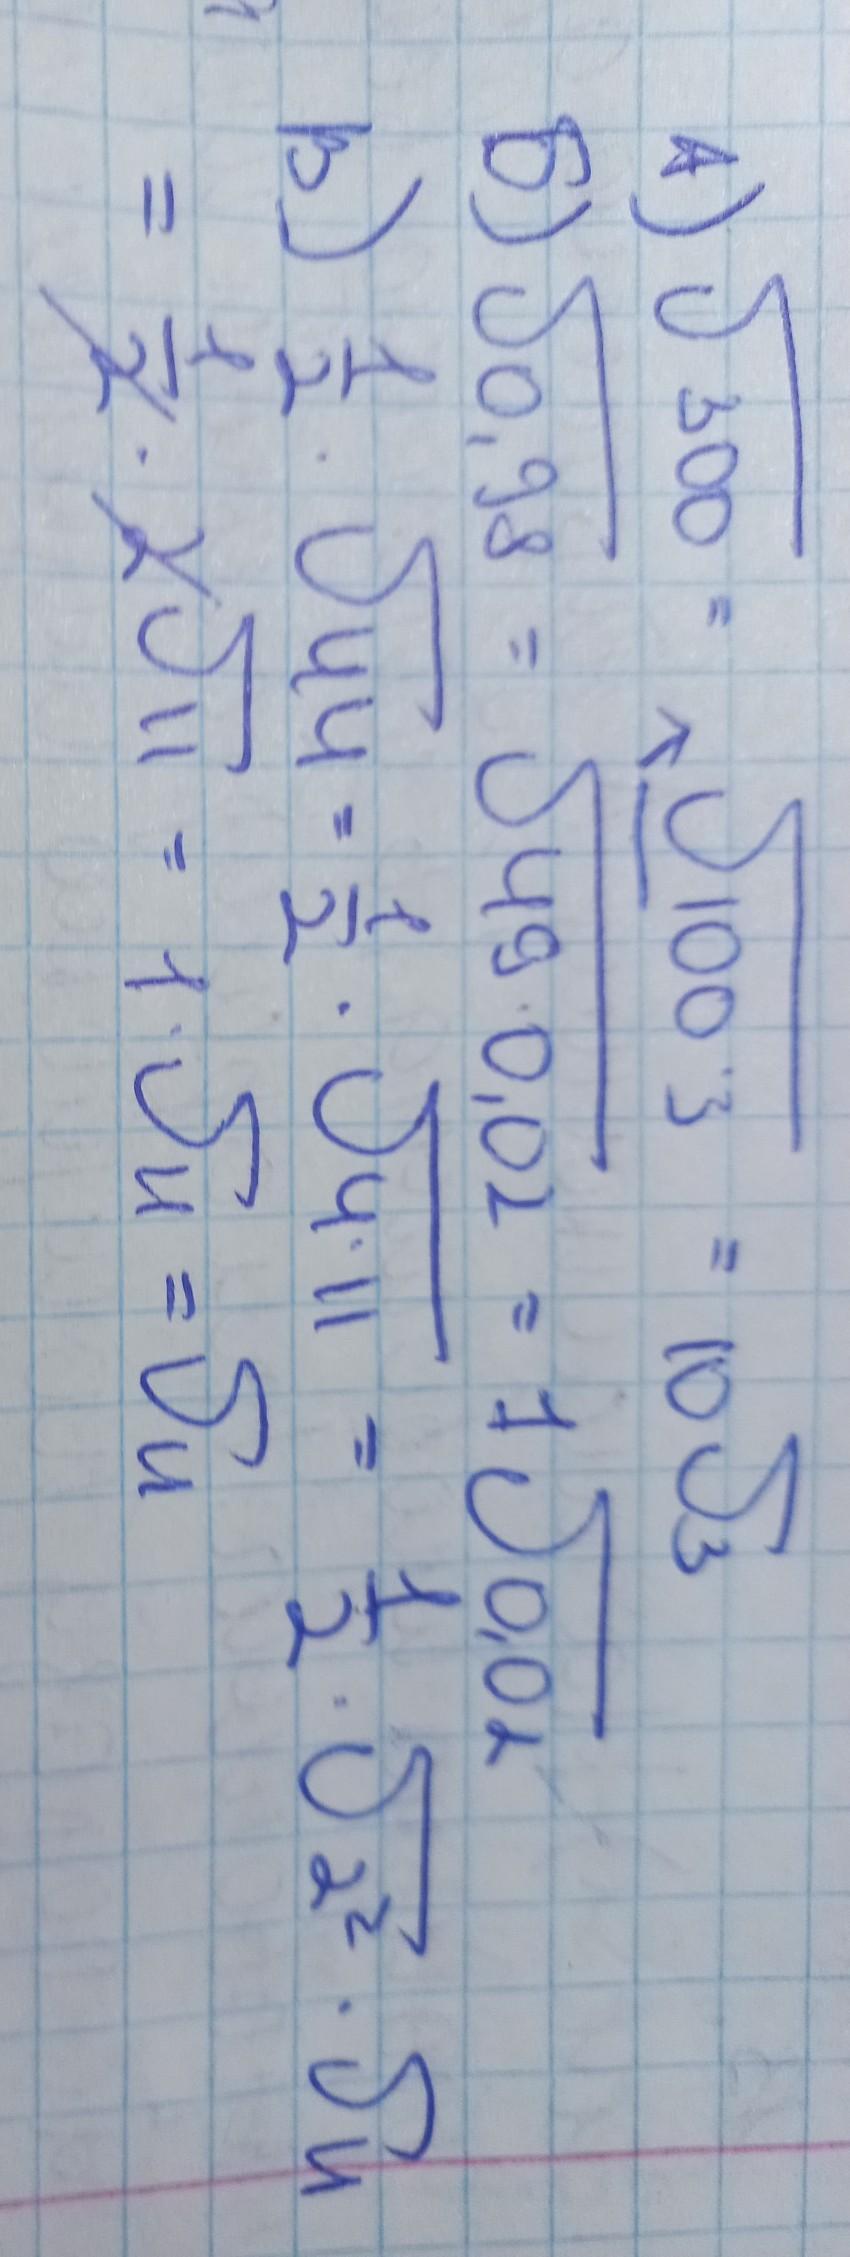 а) √300 = √100·3 = 10√3
б) √0,98 = √49·0,02 = 7√0,02
в) 1/2 · √44 = 1/2 · √4·11 = 1/2 · √2² · √11
= 1/2 · 2√11 = 1·√11 = √11